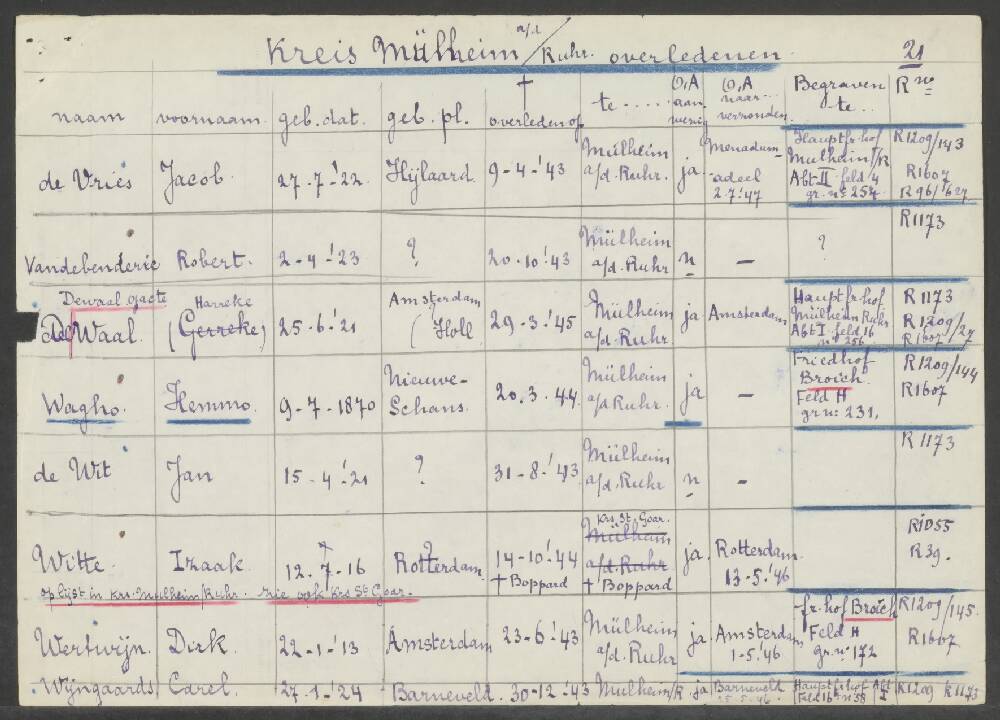 Kreis Mülheim a/d Ruhr. overledenen. 21
naam voornaam geb. dat. geb. pl. † overleden op te ..... O,A aanwezig O,A naar verzonden Begraven te.. R no
de Vries Jacob. 27-7-'22. Hijlaard. 9-4-'43 Mülheim a/d. Ruhr. ja. Menadum-adeel 2.7.'47 Hauptfr. hof Mülheim/R Abt II feld 4 gr. no 254 R1209/143 R1607 R96/1627
Vandebenderie Robert. 2-4-'23 ? 20-10-'43 Mülheim a/d. Ruhr n – ? R1173
Dewaal ojacte Harreke
De Waal. (Gerreke) 25-6-'21 Amsterdam (Holl 29-3-'45 Mülheim a/d. Ruhr ja. Amsterdam Hauptfr. hof Mülheim Ruhr Abt I feld 16 no 256 R1173 R1209/27 R1607
Wagho. Hemmo. 9-7-1870 Nieuwe-Schans. 20.3.44. Mülheim a/d Ruhr. ja – Friedhof Broich. Feld H gr no: 231, R1209/144 R1607
de Wit Jan 15-4-'21 ? 31-8-'43 Mülheim a/d. Ruhr n – R1173
Witte. Izaak 12.7-16 Rotterdam. 14-10-'44 † Boppard Krs. St. Goar. Mülheim a/d. Ruhr † Boppard ja. Rotterdam. 13-5-'46 R1055 R39.
op lijst in Krs. Mülheim/Ruhr. zie ook Krs St Goar.
Wertwijn. Dirk. 22-1-'13 Amsterdam 23-6-'43 Mülheim a/d. Ruhr ja Amsterdam 1-5.'46 fr. hof Broich Feld H gr. no 172 R1209/145. R1607
Wijngaards Carel. 27.1-'24 Barneveld. 30-12-'43 Mülheim/R ja Barneveld Hauptfrhof Abt I Feld 16 no 58 R1209 R1173